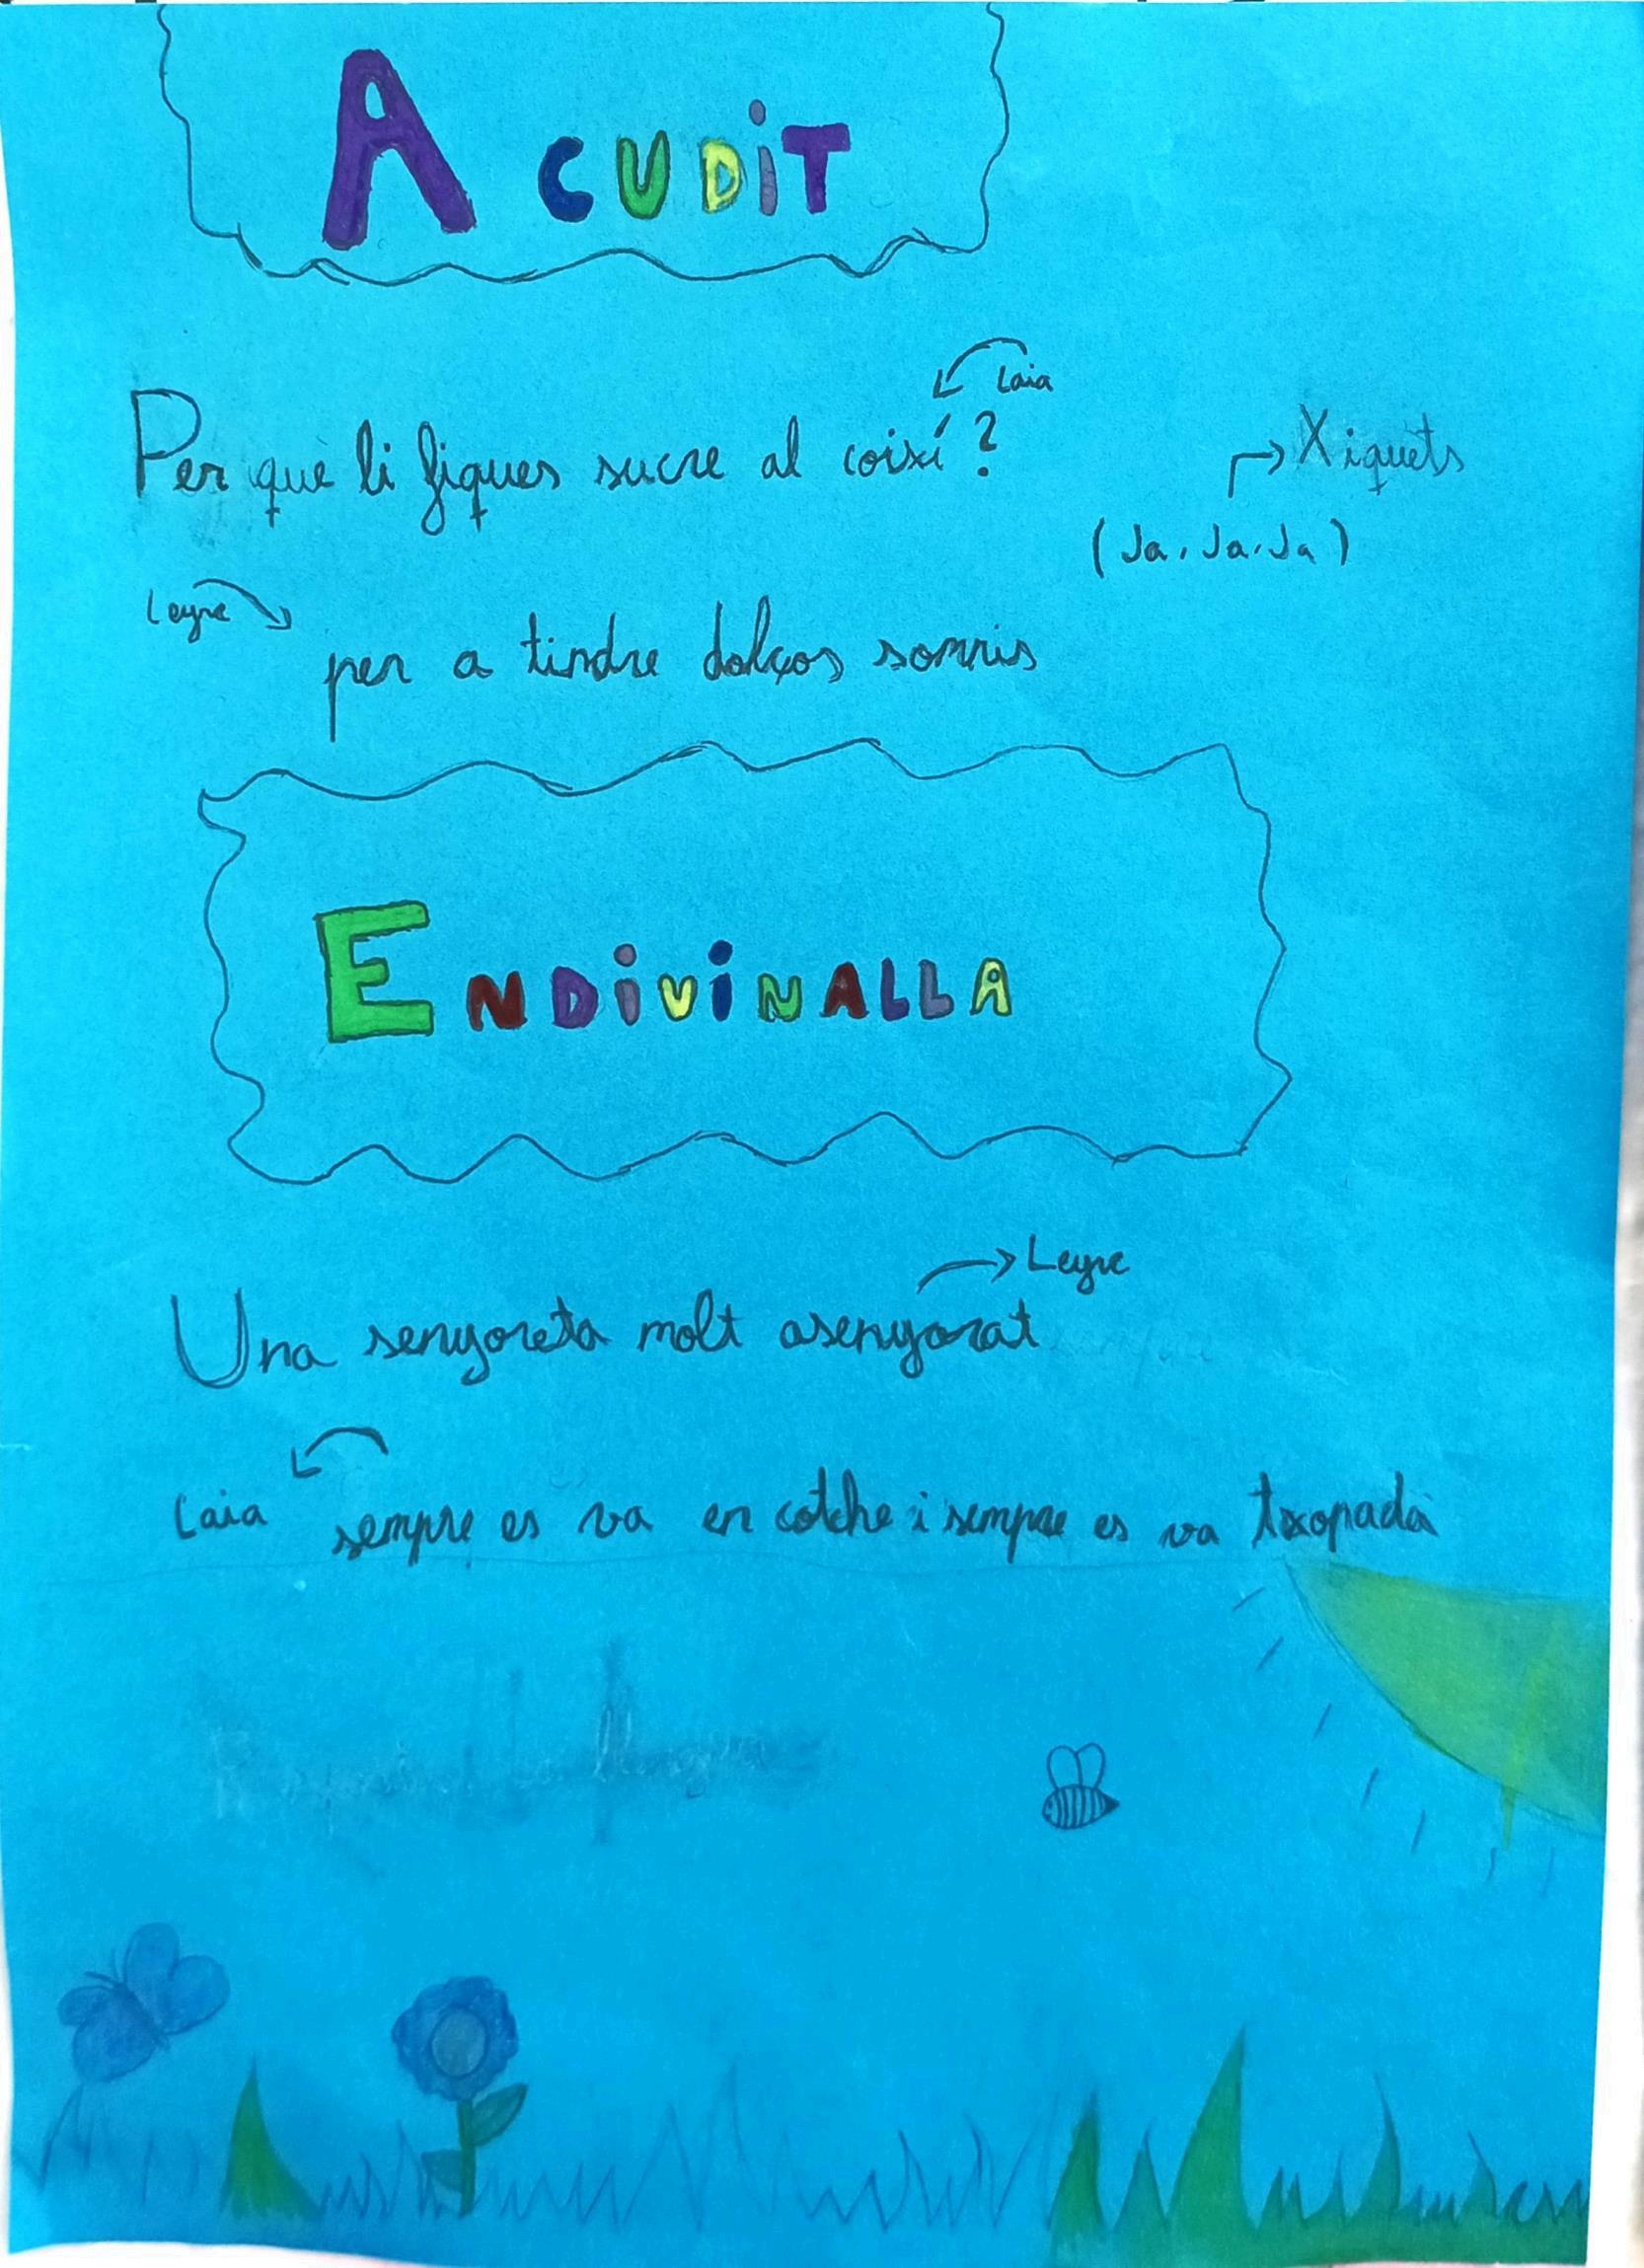 ACUDiT
Laia
Per què li fiques sucre al coixí?
Xiquets
(Ja, Ja, Ja)
Leyre
per a tindre dolços somris
ENDiViNALLA
Leyre
Una senyoreta molt asenyorat
Laia sempre es va en cotche i sempre es va txopada